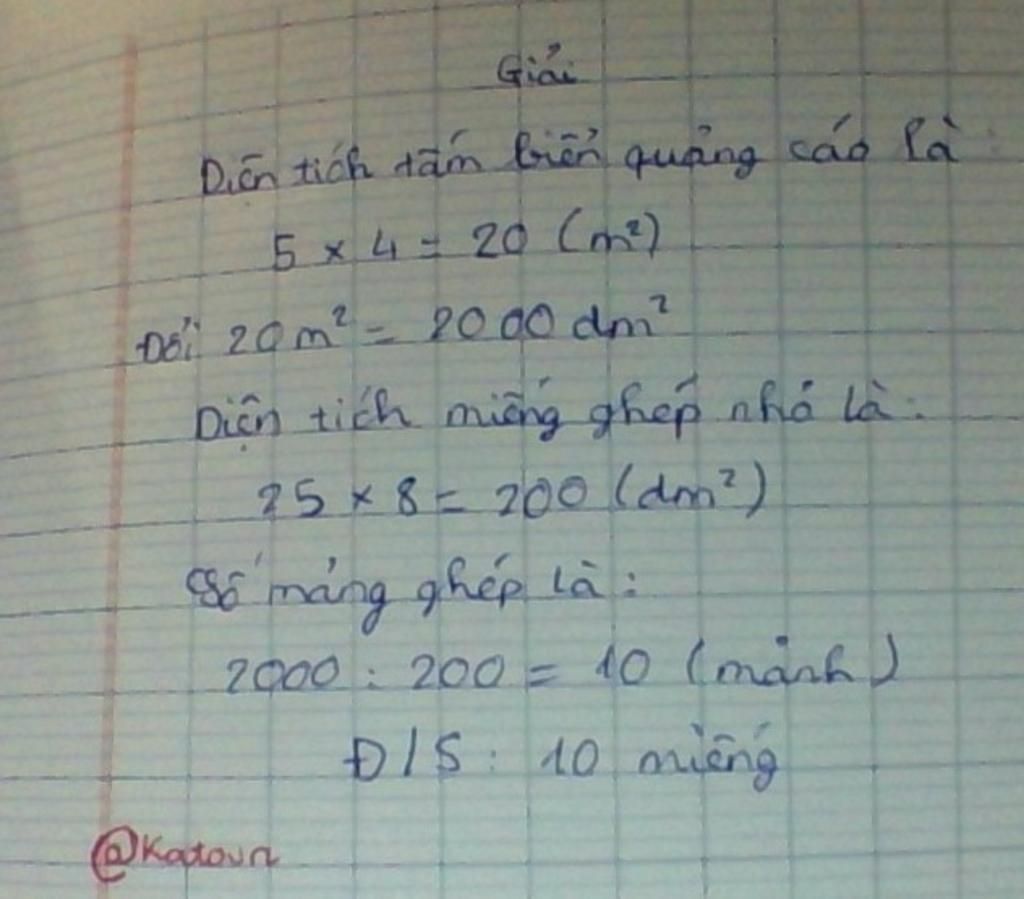 Giải
Diện tích tấm biển quảng cáo là:
5 x 4 = 20 (m²)
Đổi 20m² = 2000 dm²
Diện tích miếng ghép nhỏ là:
25 x 8 = 200 (dm²)
Số mảng ghép là:
2000 : 200 = 10 (mảnh)
Đ/S: 10 miếng
@Katoun